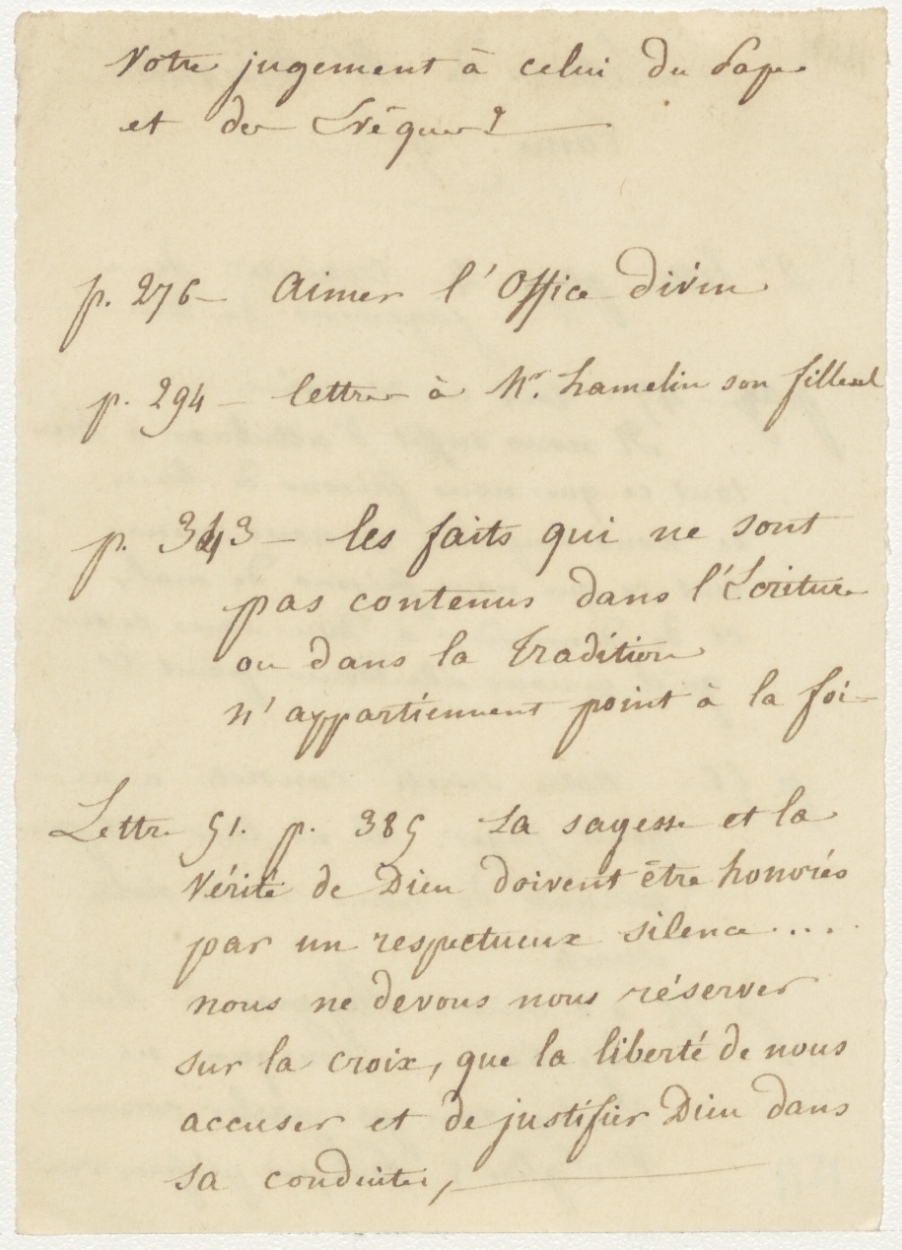 Votre jugement à celui du Pape
et des Evêques?
p. 276 - Aimer l'Office divin
p. 294 - lettres à Mr. hamelin son filleul
p. 343 - les faits qui ne sont
pas contenus dans l'Ecriture
ou dans la Tradition
n'appartiennent point à la foi -
Lettre 51. p. 385 La sagesse et la
Vérité de Dieu doivent être honorés
par un respectueux silence....
nous ne devons nous réserver
sur la croix, que la liberté de nous
accuser et de justifier Dieu dans
sa conduite,